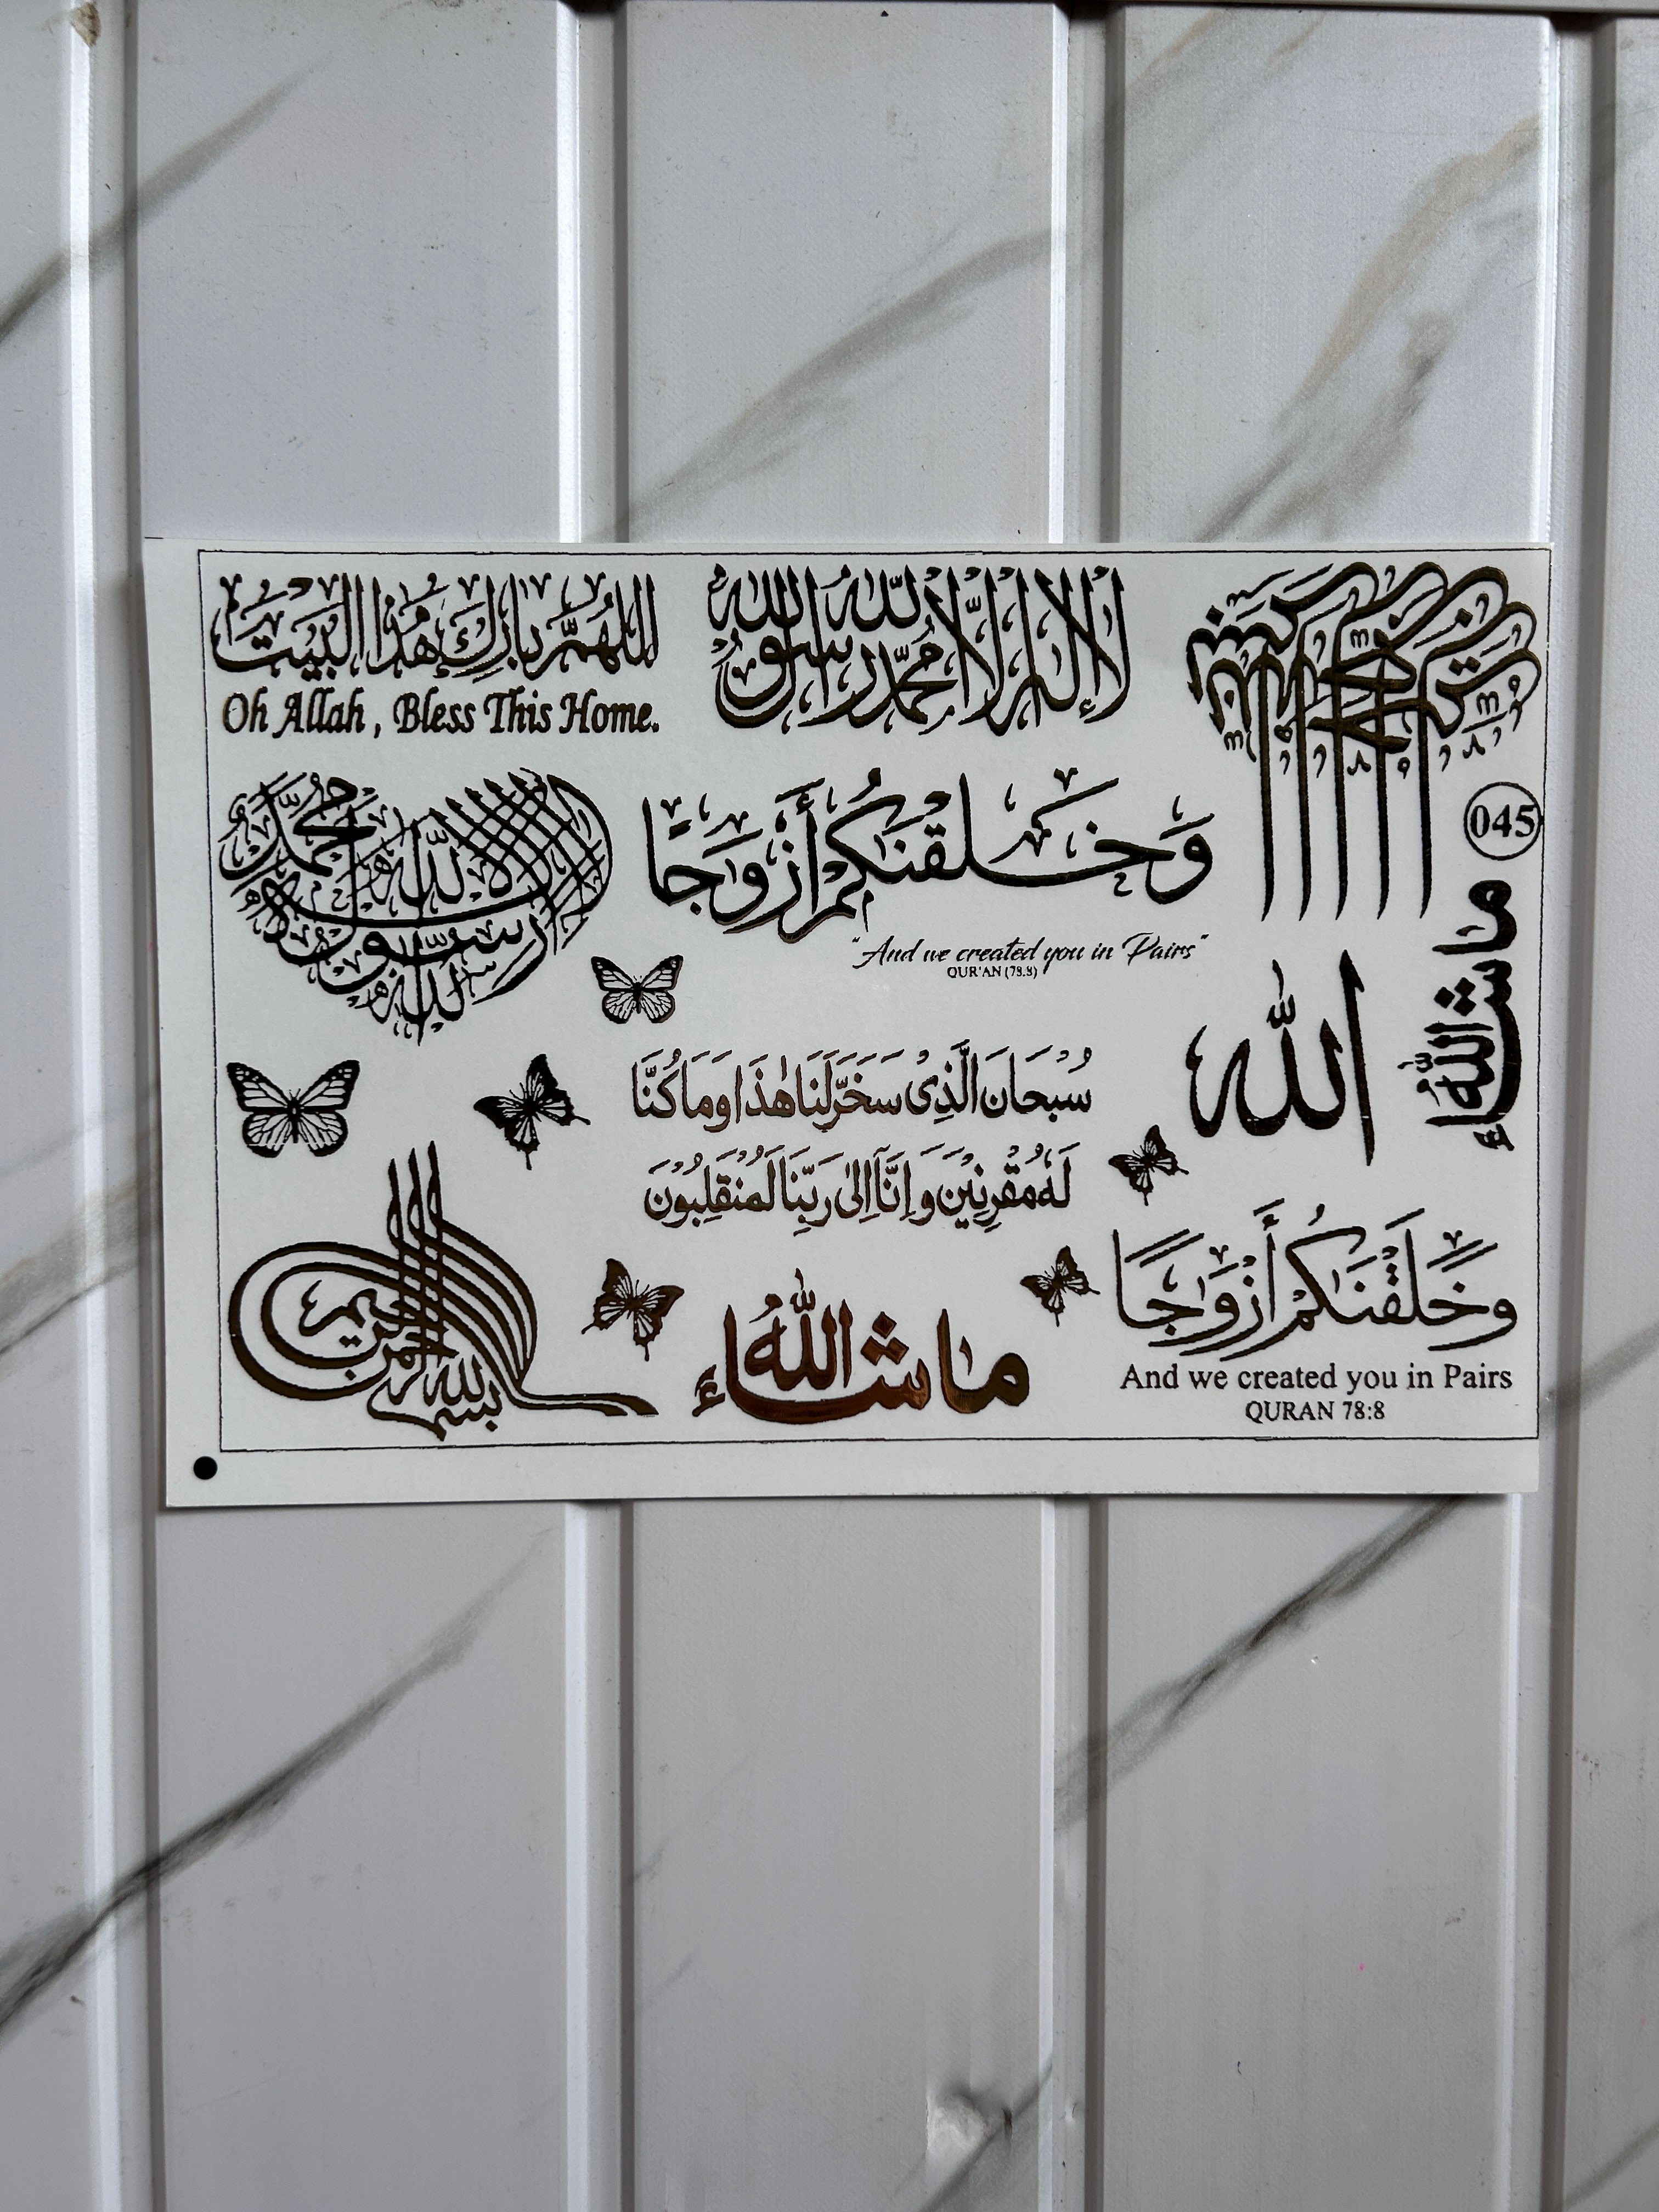 اللهم بارك هذا البيت
Oh Allah, Bless This Home.
لا إله إلا الله محمد رسول الله
045
لا إله إلا الله محمد رسول الله
وَخَلَقْنَكُمْ أَزْوَاجًا
"And we created you in Pairs"
QUR'AN (78.8)
ما شاء الله
الله
سُبْحَانَ الَّذِىْ سَخَّرَلَنَا هٰذَا وَمَا كُنَّا
لَهُ مُقْرِنِيْنَ وَاِنَّآ اِلىٰ رَبِّنَا لَمُنْقَلِبُوْنَ
بسم الله الرحمن الرحيم
ما شاء الله
وَخَلَقْنَاكُمْ أَزْوَاجًا
And we created you in Pairs
QURAN 78:8